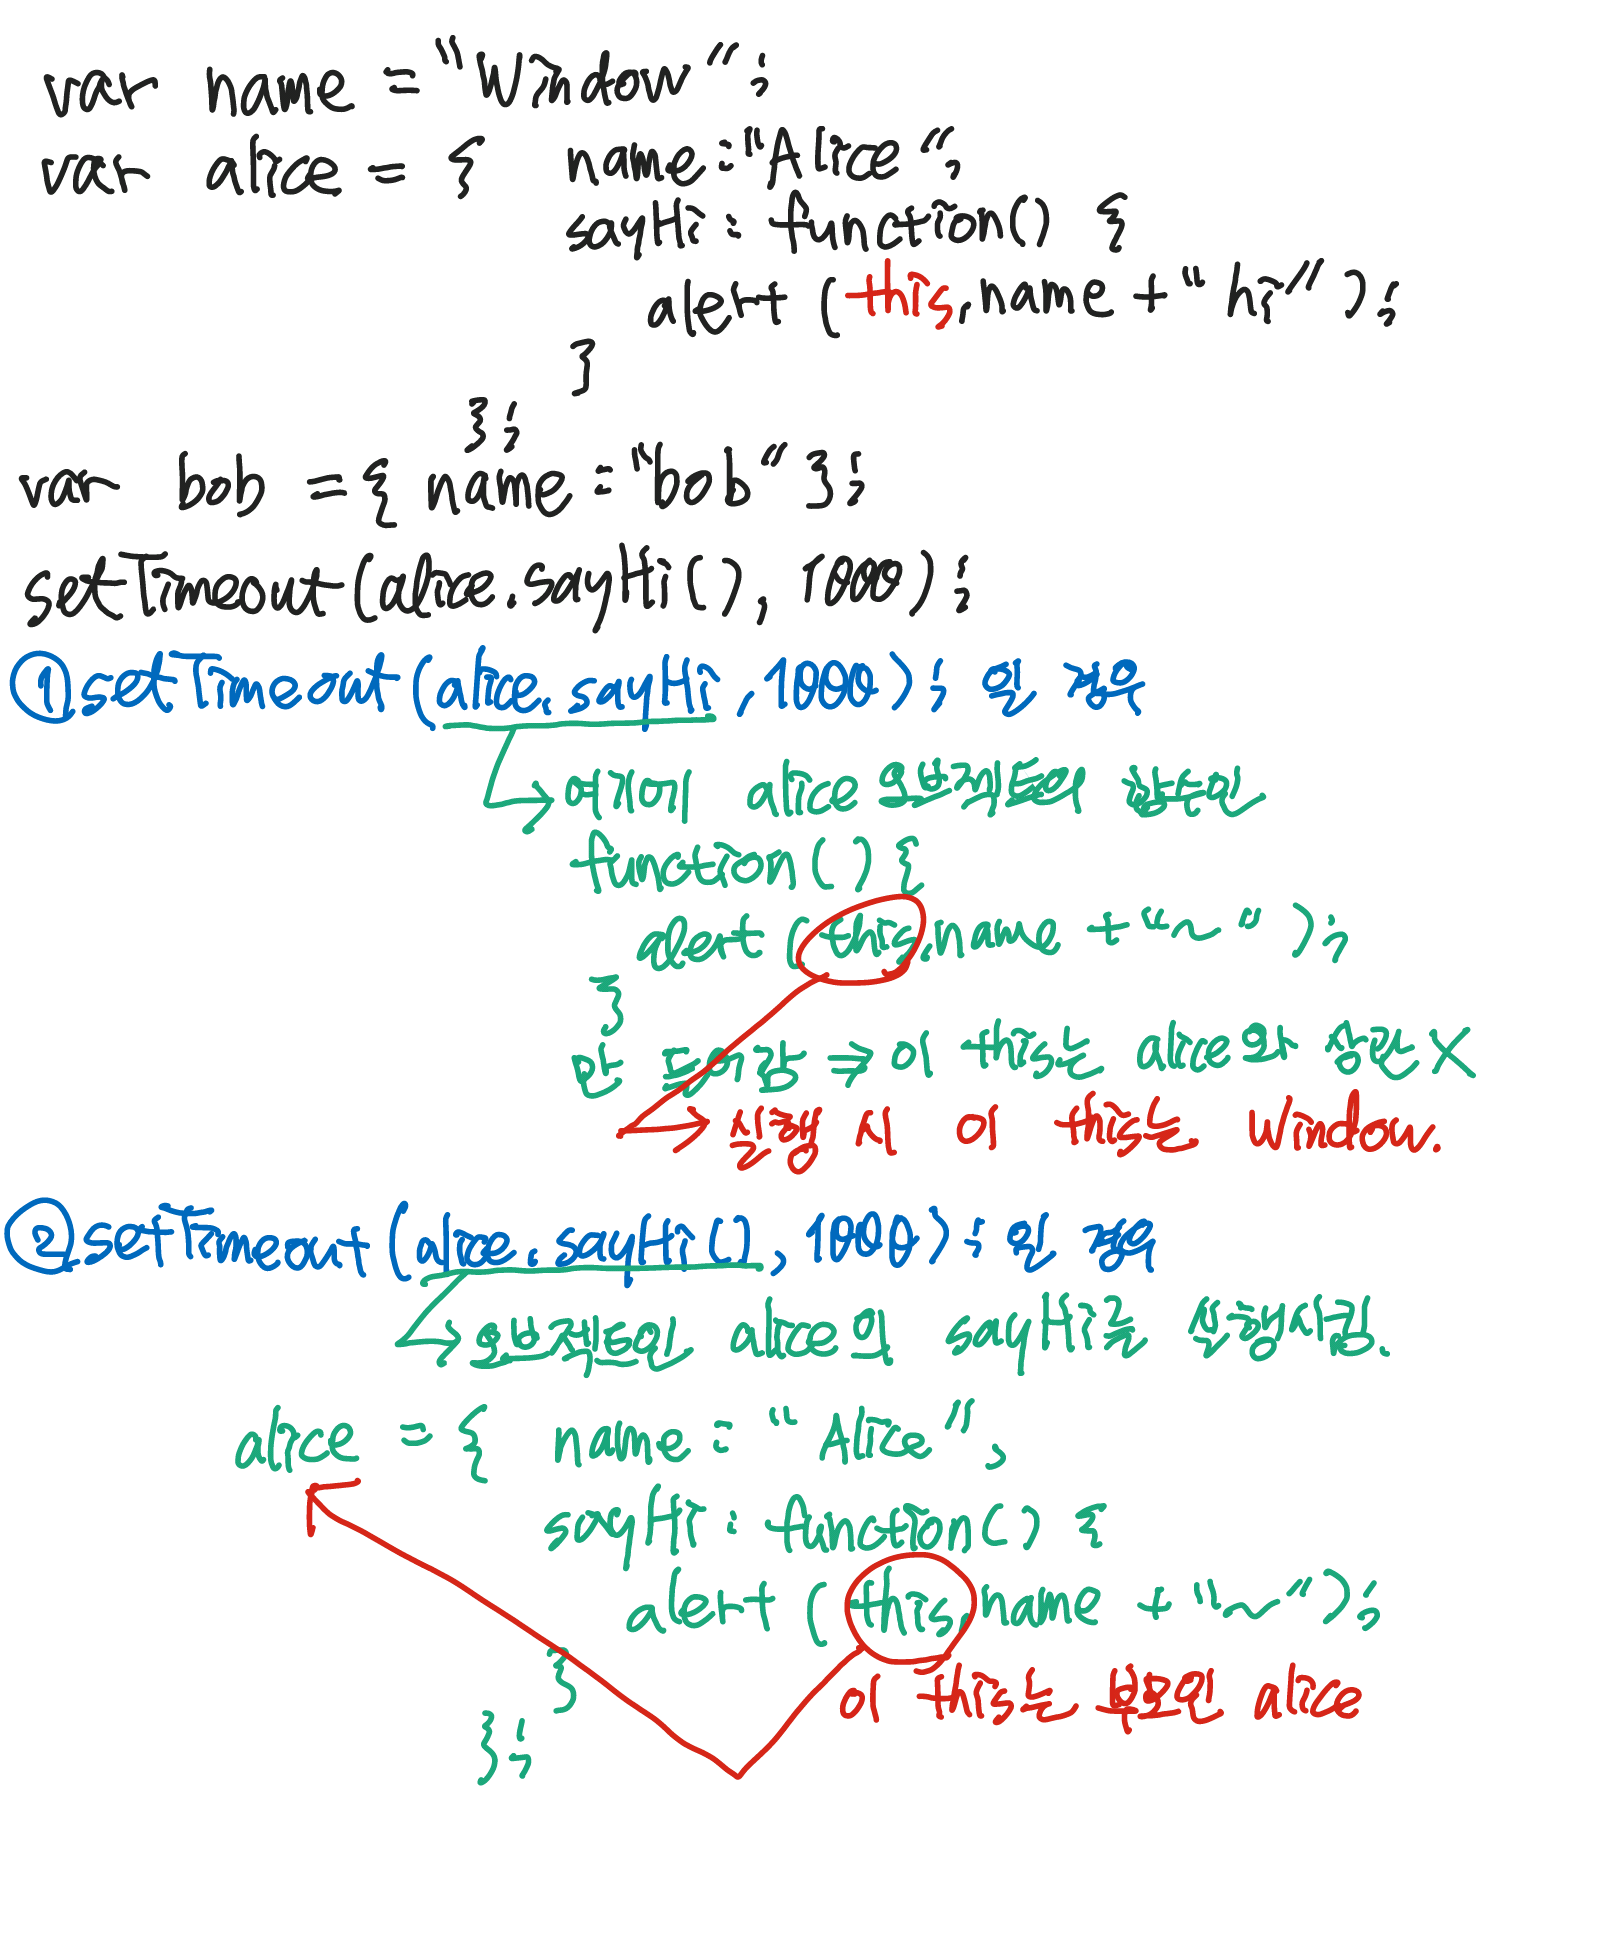 var name = "Window";
var alice = { name:"Alice",
sayHi: function() {
alert (this.name + "hi");
}
};
var bob = { name:"bob" };
setTimeout(alice.sayHi(), 1000);
① setTimeout(alice.sayHi, 1000); 일 경우
→ 여기에 alice 오브젝트의 함수인
function() {
alert (this.name + "~");
}
만 들어감 ⇒ 이 this는 alice와 상관 X
→ 실행 시 이 this는 Window.
② setTimeout(alice.sayHi(), 1000); 일 경우
→ 오브젝트인 alice의 sayHi를 실행시킴.
alice = { name: "Alice",
sayHi: function() {
alert (this.name + "~");
}
이 this는 부모인 alice
};